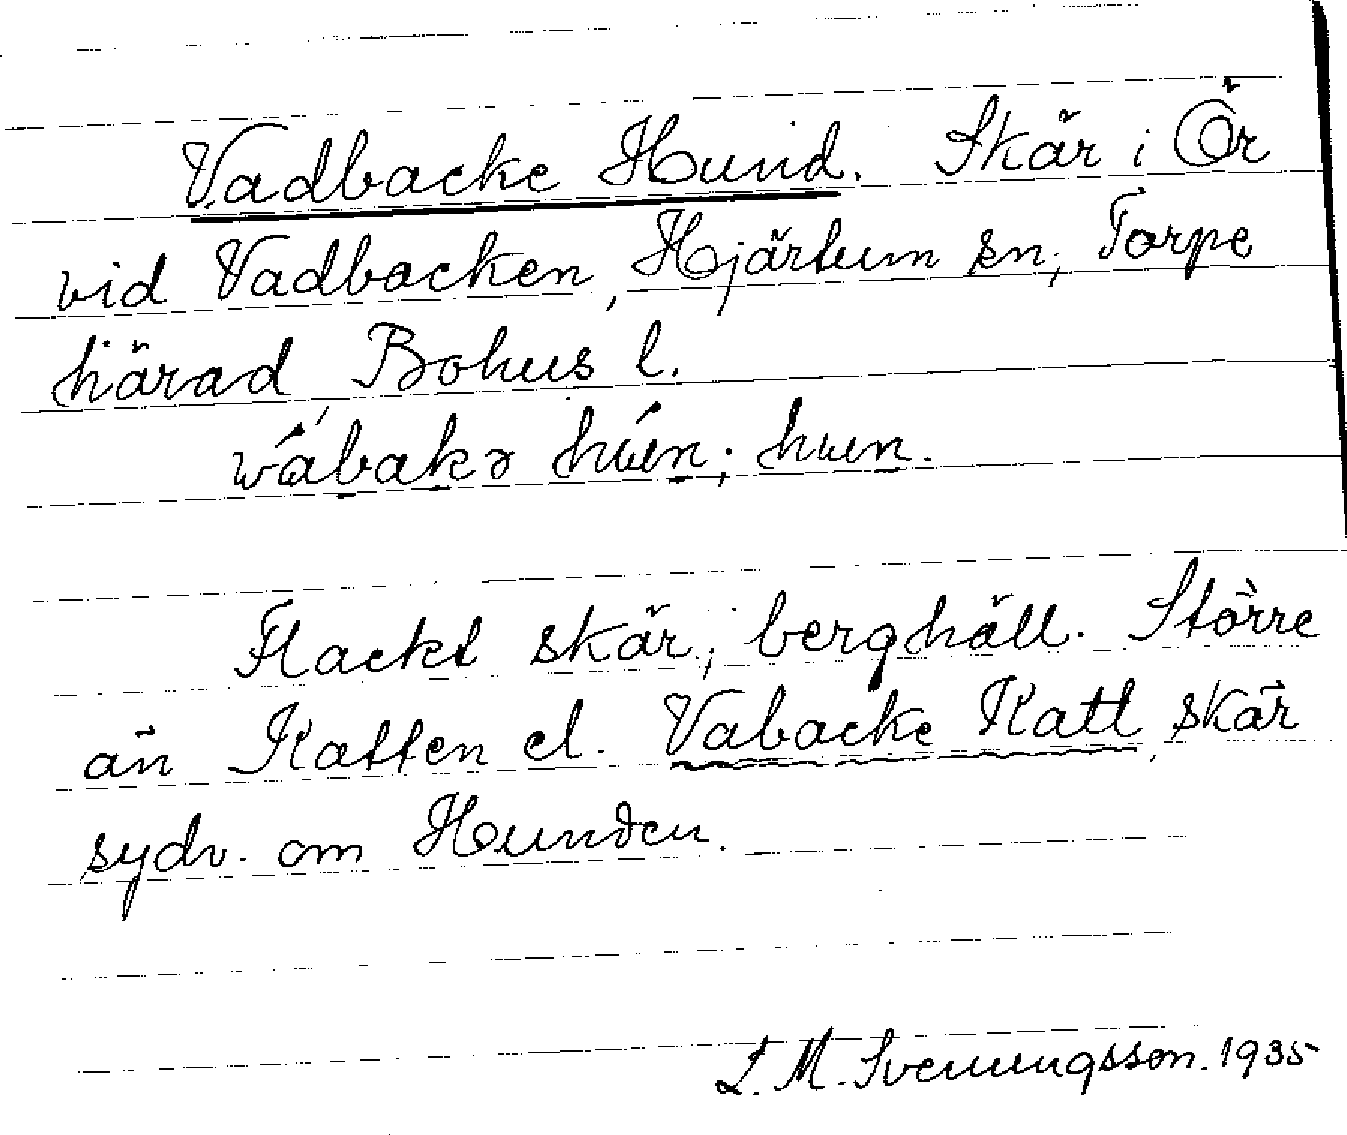 Vadbacke Hund. Skär i Ör
vid Vadbacken, Hjärtum sn; Torpe
härad, Bohus l.
wábakə hún; hun.
Flackt skär; berghäll. Större
än Katten el. Vabacke Katt, skär
sydv. om Hunden.
L. M. Svenungsson. 1935